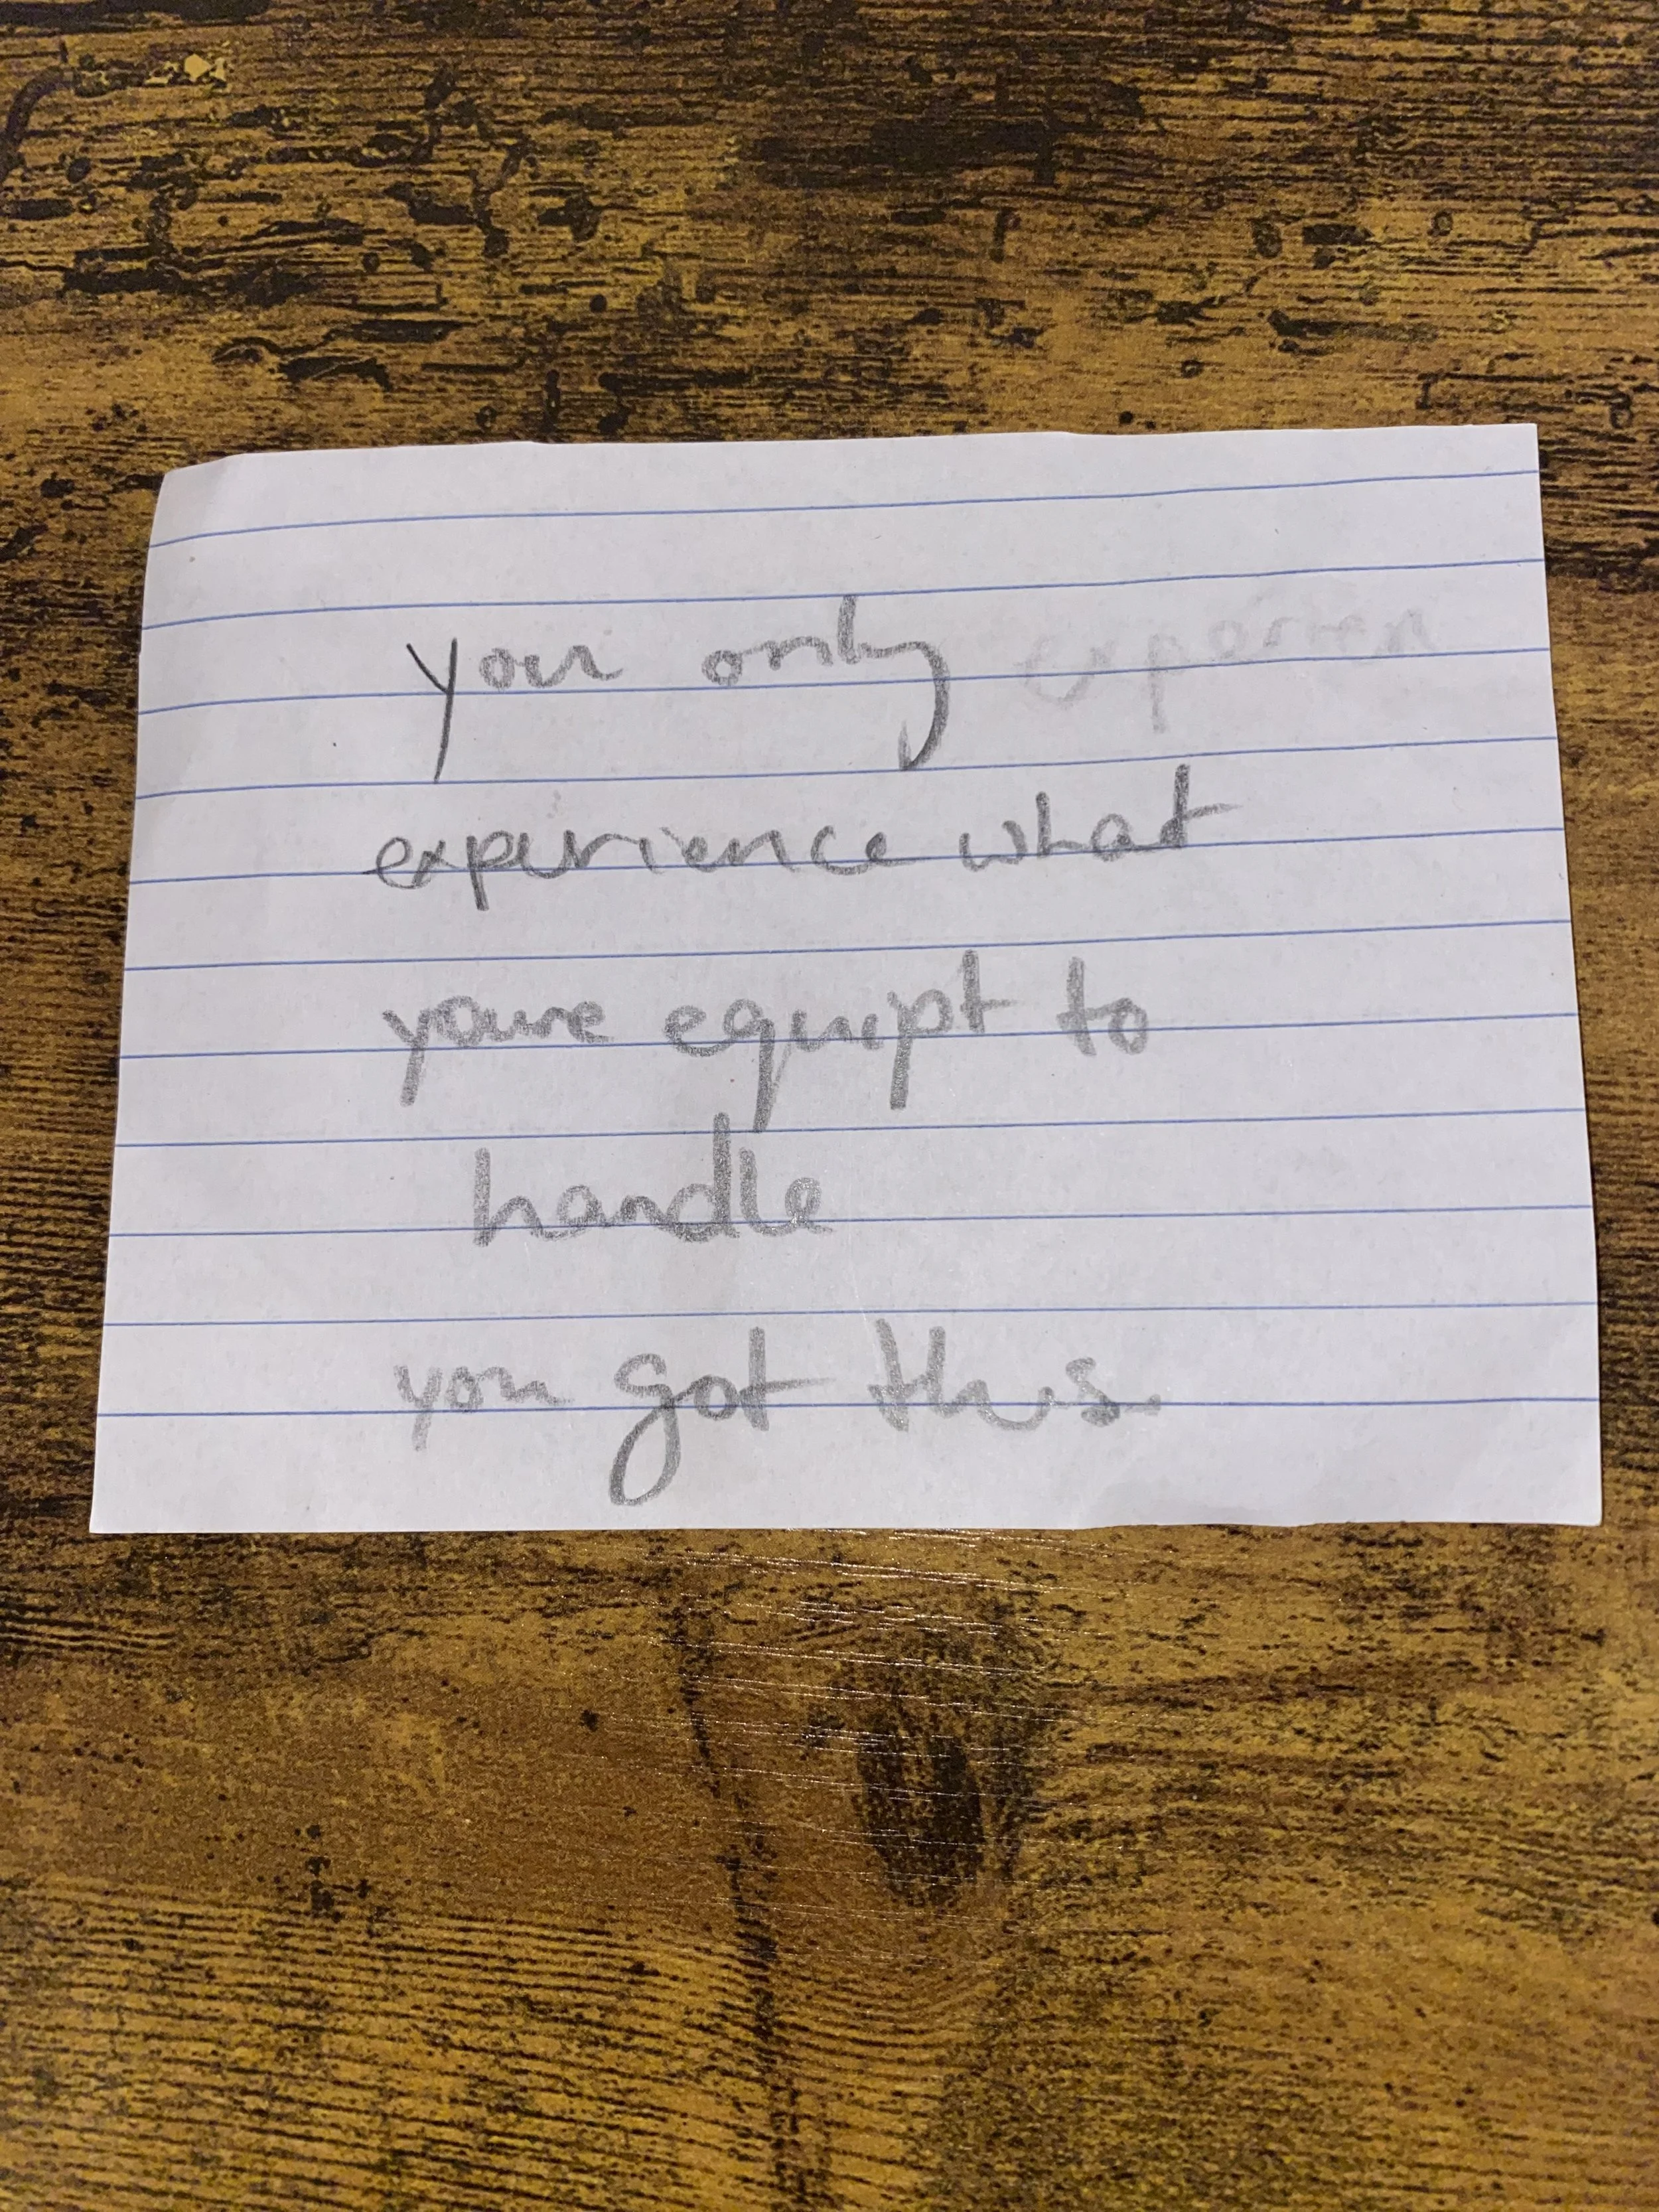 you only experien
experience what
youre equipt to
handle
you got this.